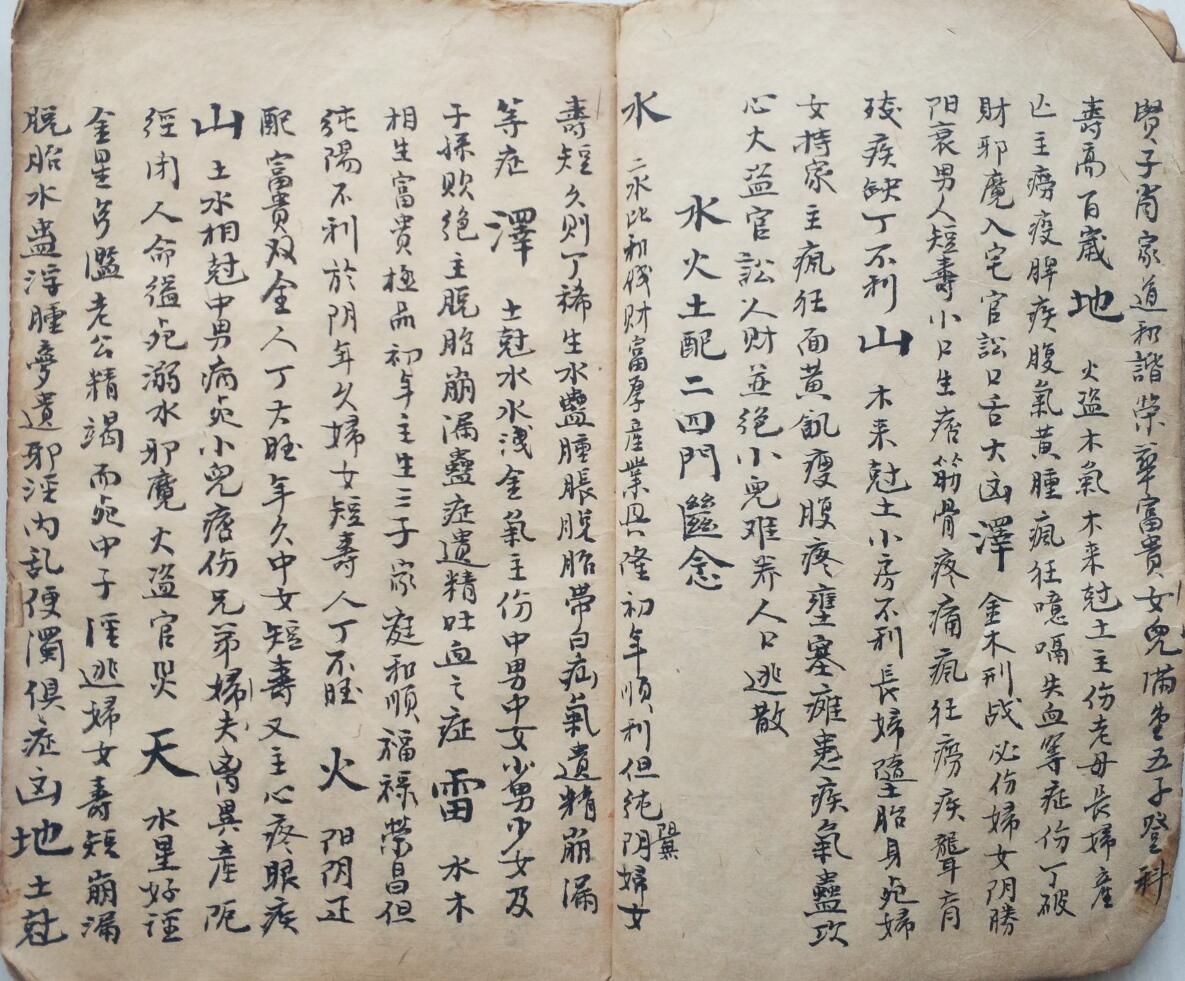 賢子肖家道和諧榮華富貴女兒滿堂五子登科
壽高百歲地 火盜木氣木来尅土主伤老母長婦產
亡主癆疫脾疾腹氣黃腫瘋狂噎嗝失血等症伤丁破
財邪魔入宅官訟口舌大凶澤 金木刑战必伤婦女阴勝
阳衰男人短壽小口生疮筋骨疼痛瘋狂癆疾聾盲
殘疾缺丁不利山 木来尅土小房不利長婦墮胎身死婦
女持家主瘋狂面黃飢瘦腹疼壅塞瘫患疾氣蠱攻
心火盗官訟人財並絕小兒难养人口逃散
水火土配二四門
水 二水比和伐财富厚產業具隆初年順利但純阴婦女
壽短久則丁稀生水蠱腫脹脱胎帶白疝氣遺精崩漏
等症 澤 土尅水水淺金氣主伤中男中女小男少女及
子孫败绝主脱胎崩漏蠱症遺精吐血之症 雷 水木
相生富貴極品初年主生三子家庭和順福禄榮昌但
純陽不利於阴年久婦女短壽人丁不旺 火 阳阴正
配富貴双全人丁大旺年久中女短壽又主心疼眼疾
山 土水相尅中男病死小兒疮伤兄弟婦夫离異產阨
經闭人命縊死溺水邪魔火盗官災 天 水星好淫
金星多濫老公精竭而死中子淫逃婦女壽短崩漏
脱胎水蛊浮腫夢遗邪淫内乱便濁俱症凶地 土尅